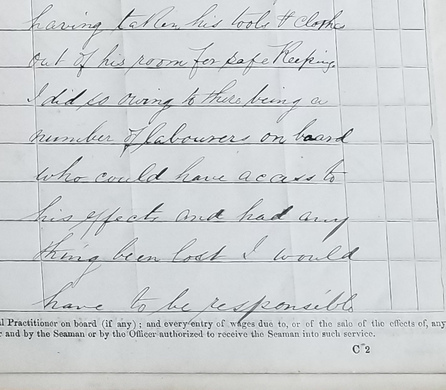 having taken his tools & clothes
out of his room for safe Keeping.
I did so owing to there being a
number of labourers on board
who could have access to
his effects and had any
thing been lost I would
have to be responsible
l Practitioner on board (if any); and every entry of wages due to, or of the sale of the effects of, any
r and by the Seaman or by the Officer authorized to receive the Seaman into such service.
C 2